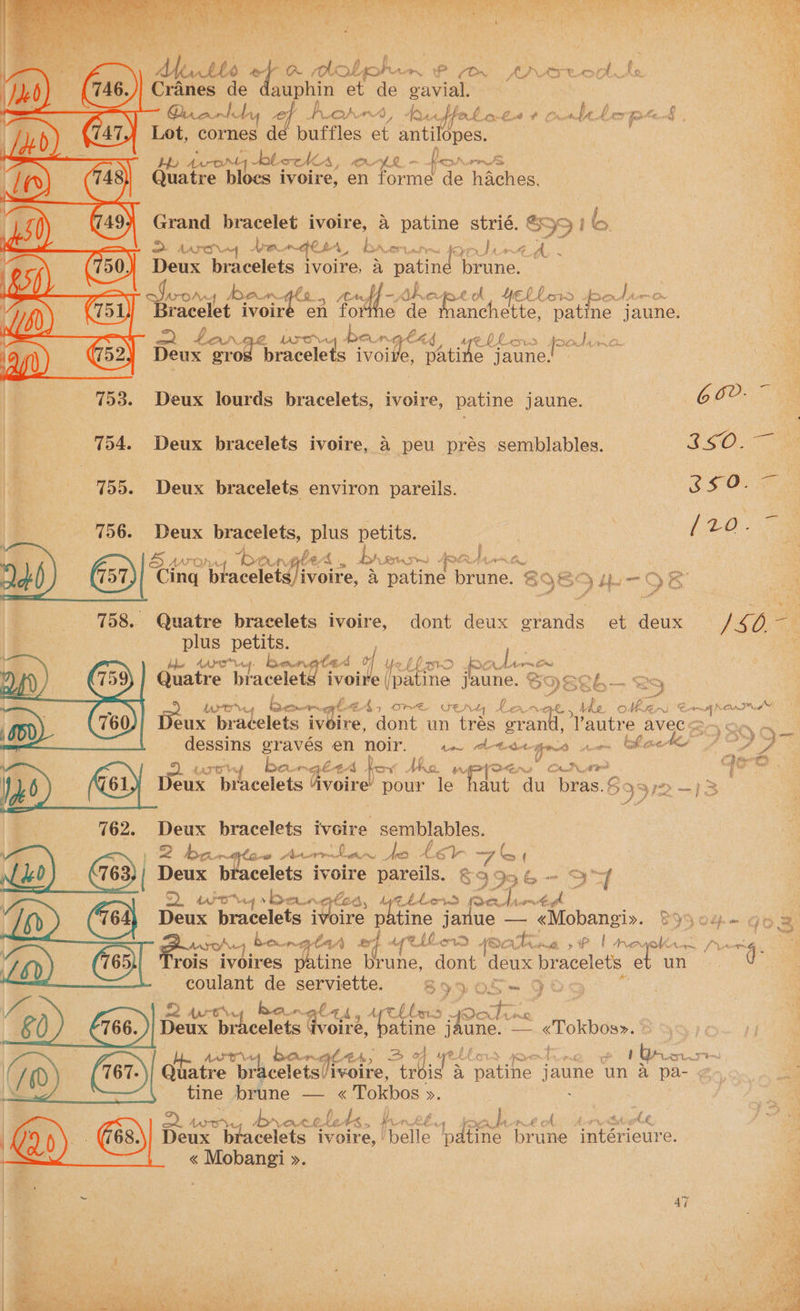 Skulls of a dolphin & a
140 746. Crânes de dauphin et de gavial.
Quantity of horns, buffaloes & antelopes.
140 747. Lot, cornes de buffles et antilopes.
4 ivory blocks, axe-forms
10 748. Quatre blocs ivoire, en forme de hâches.
150 749. Grand bracelet ivoire, à patine strié. 89916
2 ivory bangles, brown patina.
650 750. Deux bracelets ivoire, à patine brune.
Ivory bangle, cuff-shaped, yellow patina
751. Bracelet ivoire en forme de manchette, patine jaune.
2 large ivory bangles, yellow patina
752. Deux gros bracelets ivoire, patine jaune.
753. Deux lourds bracelets, ivoire, patine jaune. 600.-
754. Deux bracelets ivoire, à peu près semblables. 350.-
755. Deux bracelets environ pareils. 350.-
756. Deux bracelets, plus petits. 120.-
5 ivory bangles, brown patina
240 757. Cinq bracelets ivoire, à patine brune. 89894-98
758. Quatre bracelets ivoire, dont deux grands et deux 150.-
plus petits.
4 ivory bangles of yellow patina
759. Quatre bracelets ivoire patine jaune.
2 ivory bangles, one very large, the other engraved
760. Deux bracelets ivoire, dont un très grand, l'autre avec
dessins gravés en noir. in black
2 ivory bangles for the upper arm
761. Deux bracelets ivoire pour le haut du bras. 89912-13
762. Deux bracelets ivoire semblables.
2 bangles similar to lot 761
763. Deux bracelets ivoire pareils. 89996-97
2 ivory bangles, yellow patina
764. Deux bracelets ivoire patine janue — «Mobangi».
bangles of yellow patina, & 1 napkin ring.
765. Trois ivoires patine brune, dont deux bracelets et un
coulant de serviette. 89905-906
2 ivory bangles, yellow patina
80 766. Deux bracelets ivoire, patine jaune. — «Tokbos».
4 ivory bangles, 3 of yellow patina & 1 brown
767. Quatre bracelets ivoire, trois à patine jaune un à pa-
tine brune — « Tokbos ».
2 ivory bracelets, patined
768. Deux bracelets ivoire, belle patine brune intérieure.
« Mobangi ».
47